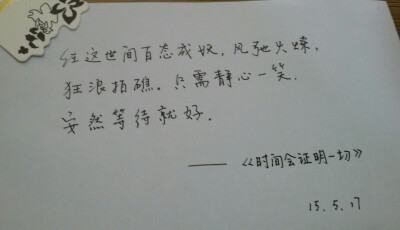 任这世间百态成妖，风驰火燎，
狂浪拍礁。只需静心一笑.
安然等待就好.
——《时间会证明一切》
15.5.17